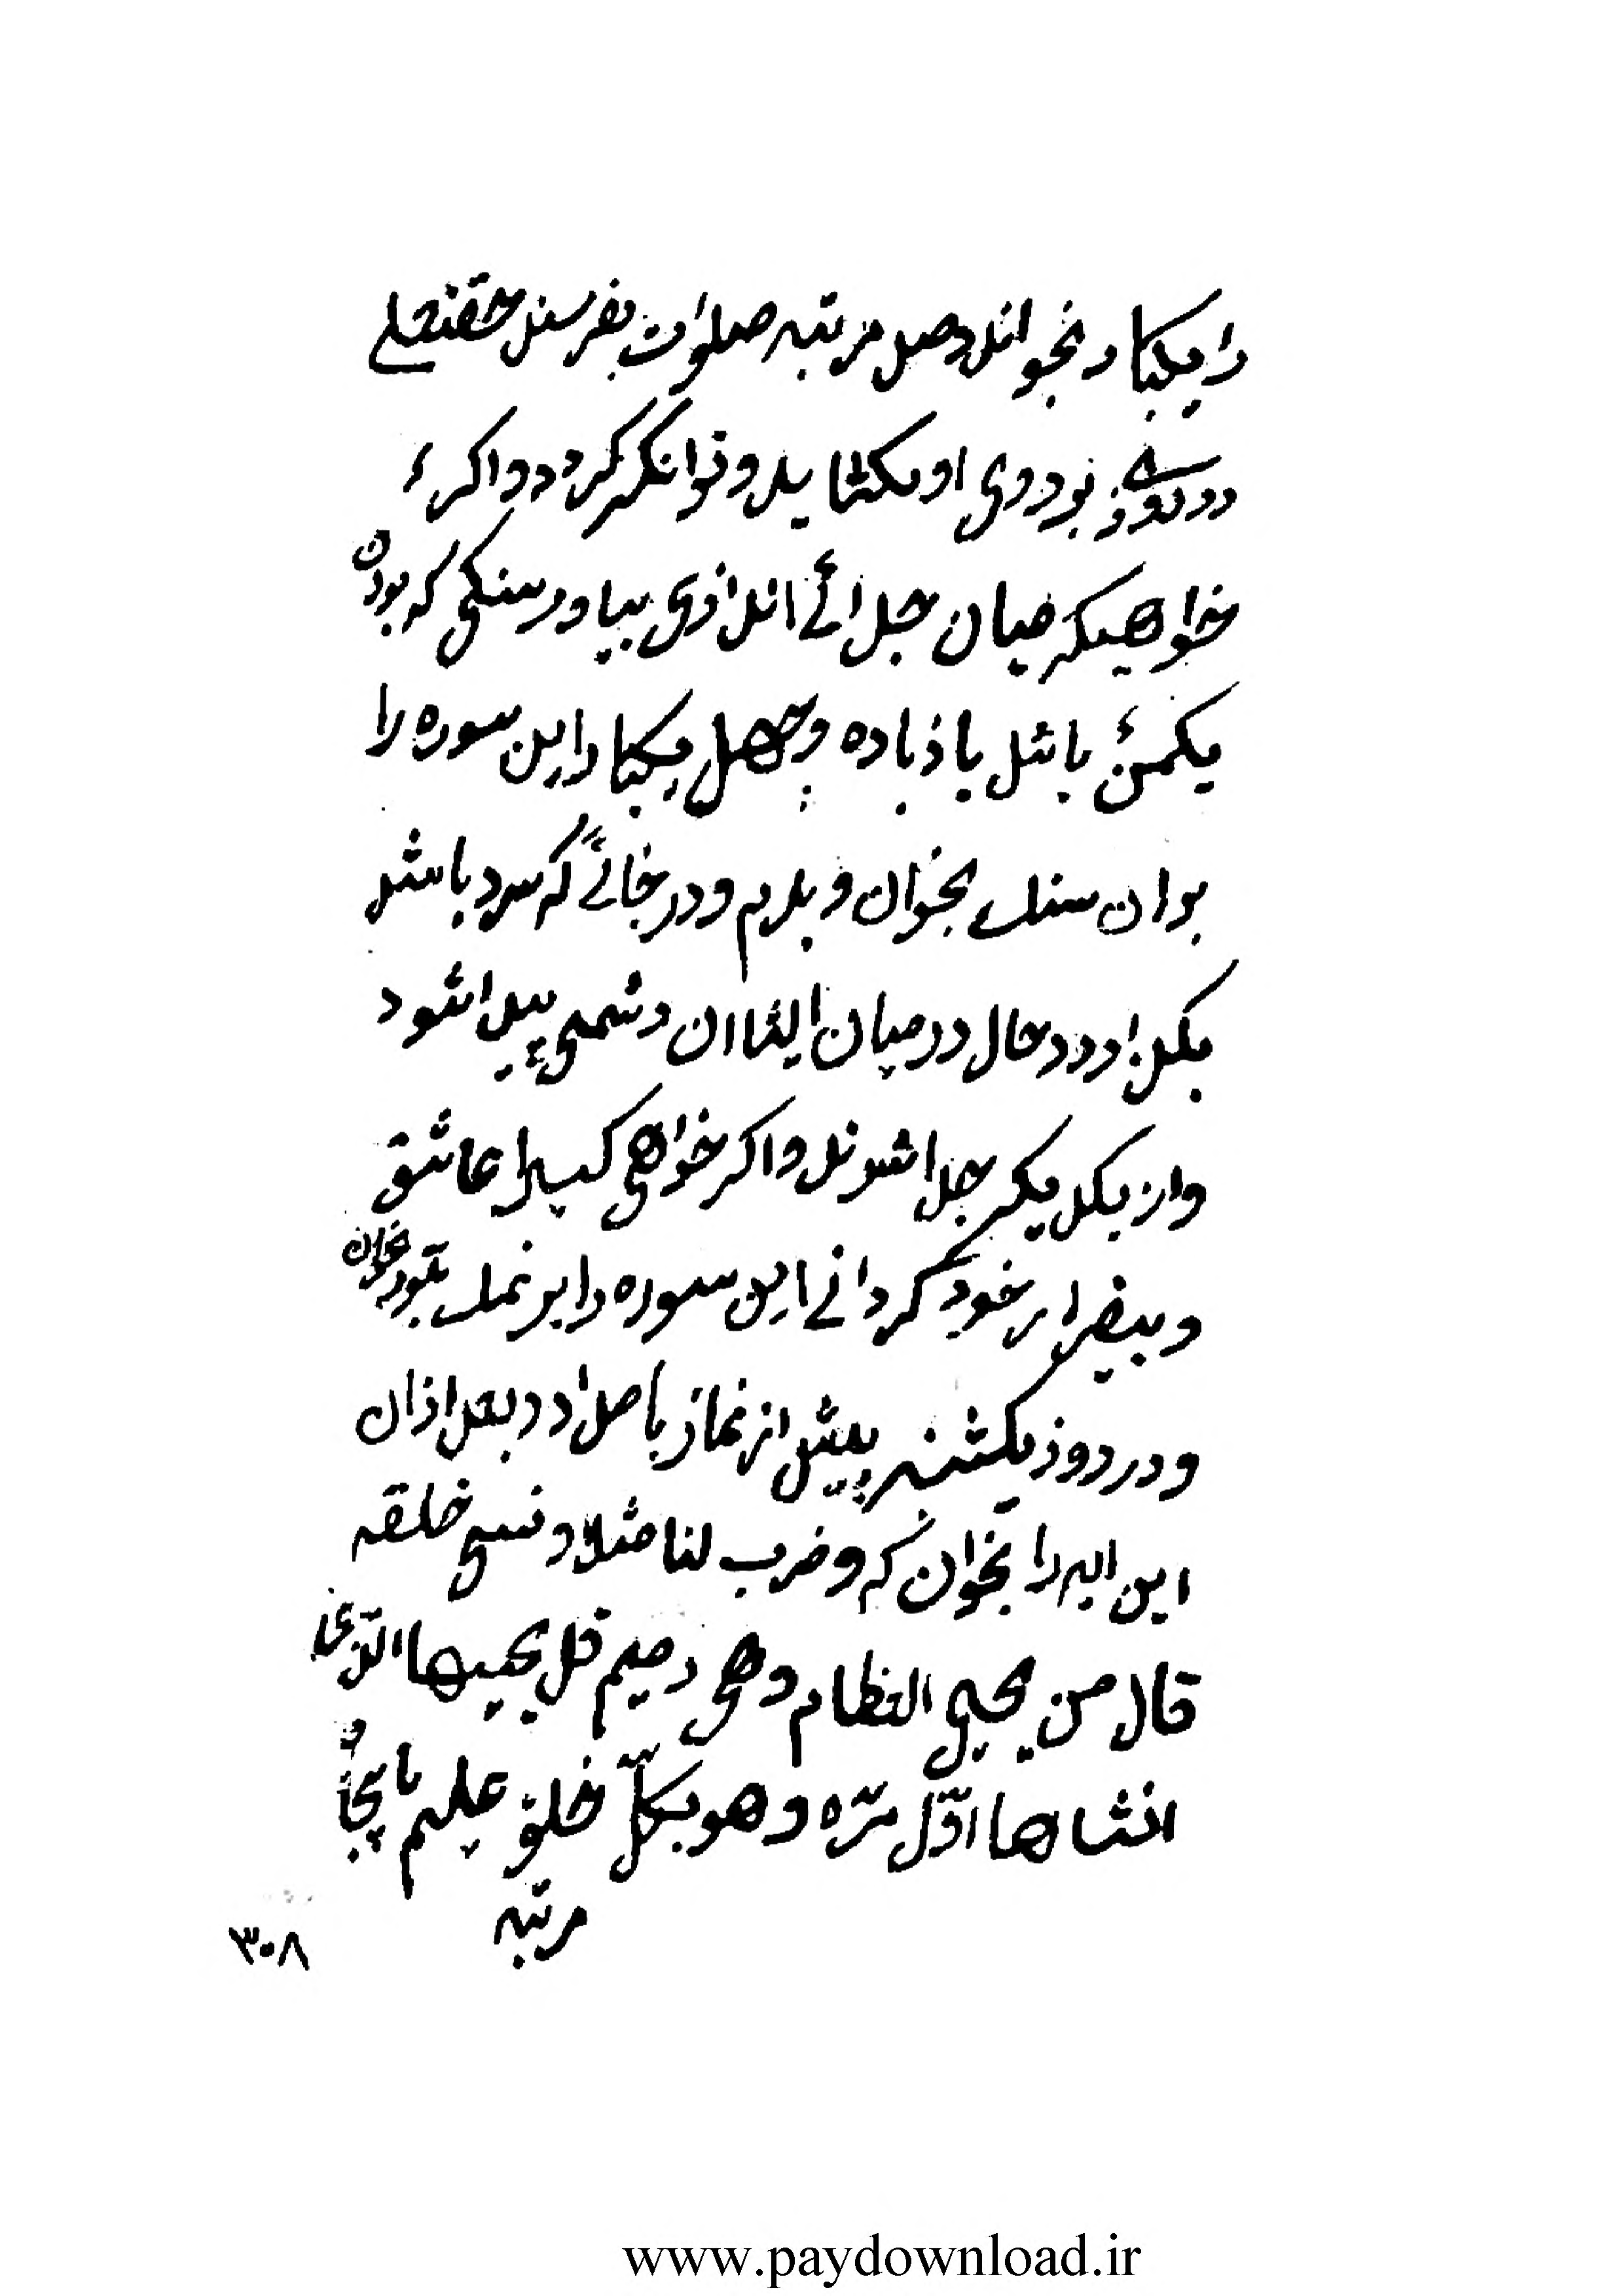 را یکبار بخواند و صد مرتبه صلوات بفرستد حقتعالی
در روزی بر روی او بکشاید و توانگر گردد و اگر
خواهیکه میان جدائی اندازی بیاور سنگی که بوزن
یکمن باشد یا زیاده و چهل یکبار این سوره را
بر ان سنک بخوان و بدم و در خانهٔ که سرد باشد
بگذار در حال در میان ایشان دشمنی پیدا شود
و از یکدیگر جدا شوند و اگر خواهی کسیرا عاشق
و بیقرار خود گردانی این سوره را بر نمک بخوان
و در روز یکشنبه پیش از نماز بامداد و بعد از ان
این ایه را بخوان که و ضرب لنا مثلا و نسی خلقه
قال من یحیی العظام و هی رمیم قل یحییها الذی
انشاها اوّل مرّه و هو بکلّ خلق علیم تا پنج
مرتبه
۳۰۸
www.paydownload.ir